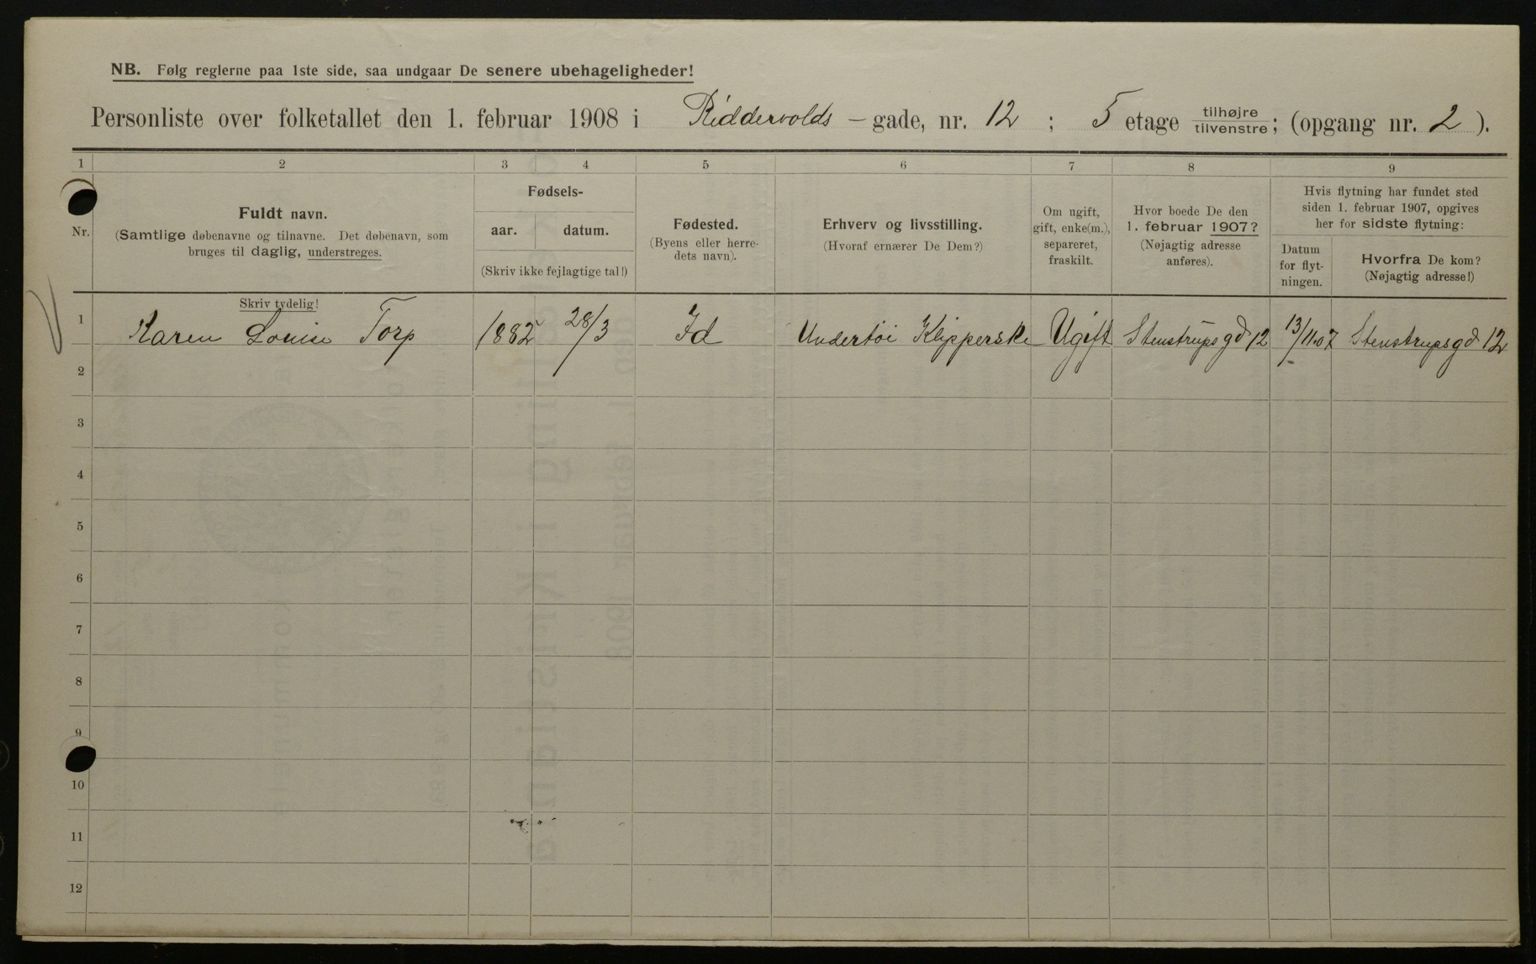 NB. Følg reglerne paa 1ste side, saa undgaar De senere ubehageligheder!
Personliste over folketallet den 1. februar 1908 i Riddervolds - gade, nr. 12 ; 5 etage tilhøjre tilvenstre; (opgang nr. 2 ).
1 2 3 4 5 6 7 8 9
Nr.
Fuldt navn.
(Samtlige døbenavne og tilnavne. Det døbenavn, som
bruges til daglig, understreges.
Skriv tydelig!
Fødsels-
aar. datum.
(Skriv ikke fejlagtige tal!)
Fødested.
(Byens eller herre-
dets navn).
Erhverv og livsstilling.
(Hvoraf ernærer De Dem?)
Om ugift,
gift, enke(m.),
separeret,
fraskilt.
Hvor boede De den
1. februar 1907?
(Nøjagtig adresse
anføres).
Hvis flytning har fundet sted
siden 1. februar 1907, opgives
her for sidste flytning:
Datum
for flyt-
ningen.
Hvorfra De kom?
(Nøjagtig adresse!)
1 Karen Louise Torp 1882 28/3 Id Undertöi Klipperske Ugift Stenstrupsgd 12 13/11.07 Stenstrupsgd 12
2
3
4
5
6
7
8
9
10
11
12